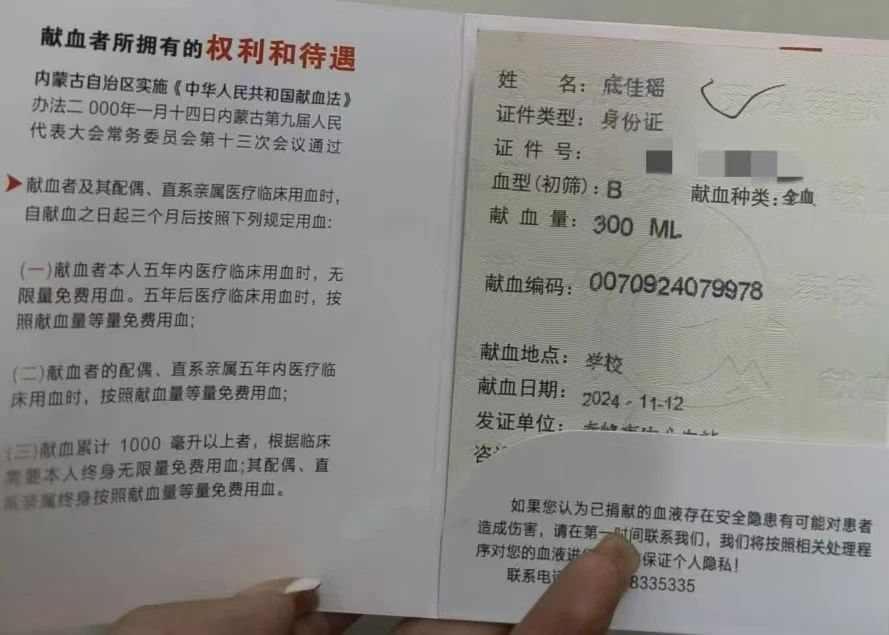 献血者所拥有的权利和待遇
内蒙古自治区实施《中华人民共和国献血法》
办法二 000年一月十四日内蒙古第九届人民
代表大会常务委员会第十三次会议通过
献血者及其配偶、直系亲属医疗临床用血时，
自献血之日起三个月后按照下列规定用血:
(一)献血者本人五年内医疗临床用血时，无
限量免费用血。五年后医疗临床用血时，按
照献血量等量免费用血;
(二)献血者的配偶、直系亲属五年内医疗临
床用血时，按照献血量等量免费用血;
(三)献血累计 1000 毫升以上者，根据临床
需要本人终身无限量免费用血;其配偶、直
系亲属终身按照献血量等量免费用血。
姓 名: 底佳瑶
证件类型: 身份证
证 件 号:
血型(初筛): B 献血种类: 全血
献 血 量: 300 ML
献血编码: 0070924079978
献血地点: 学校
献血日期: 2024-11-12
发证单位:
如果您认为已捐献的血液存在安全隐患有可能对患者
造成伤害，请在第一时间联系我们，我们将按照相关处理程
序对您的血液进 保证个人隐私！
联系电 8335335